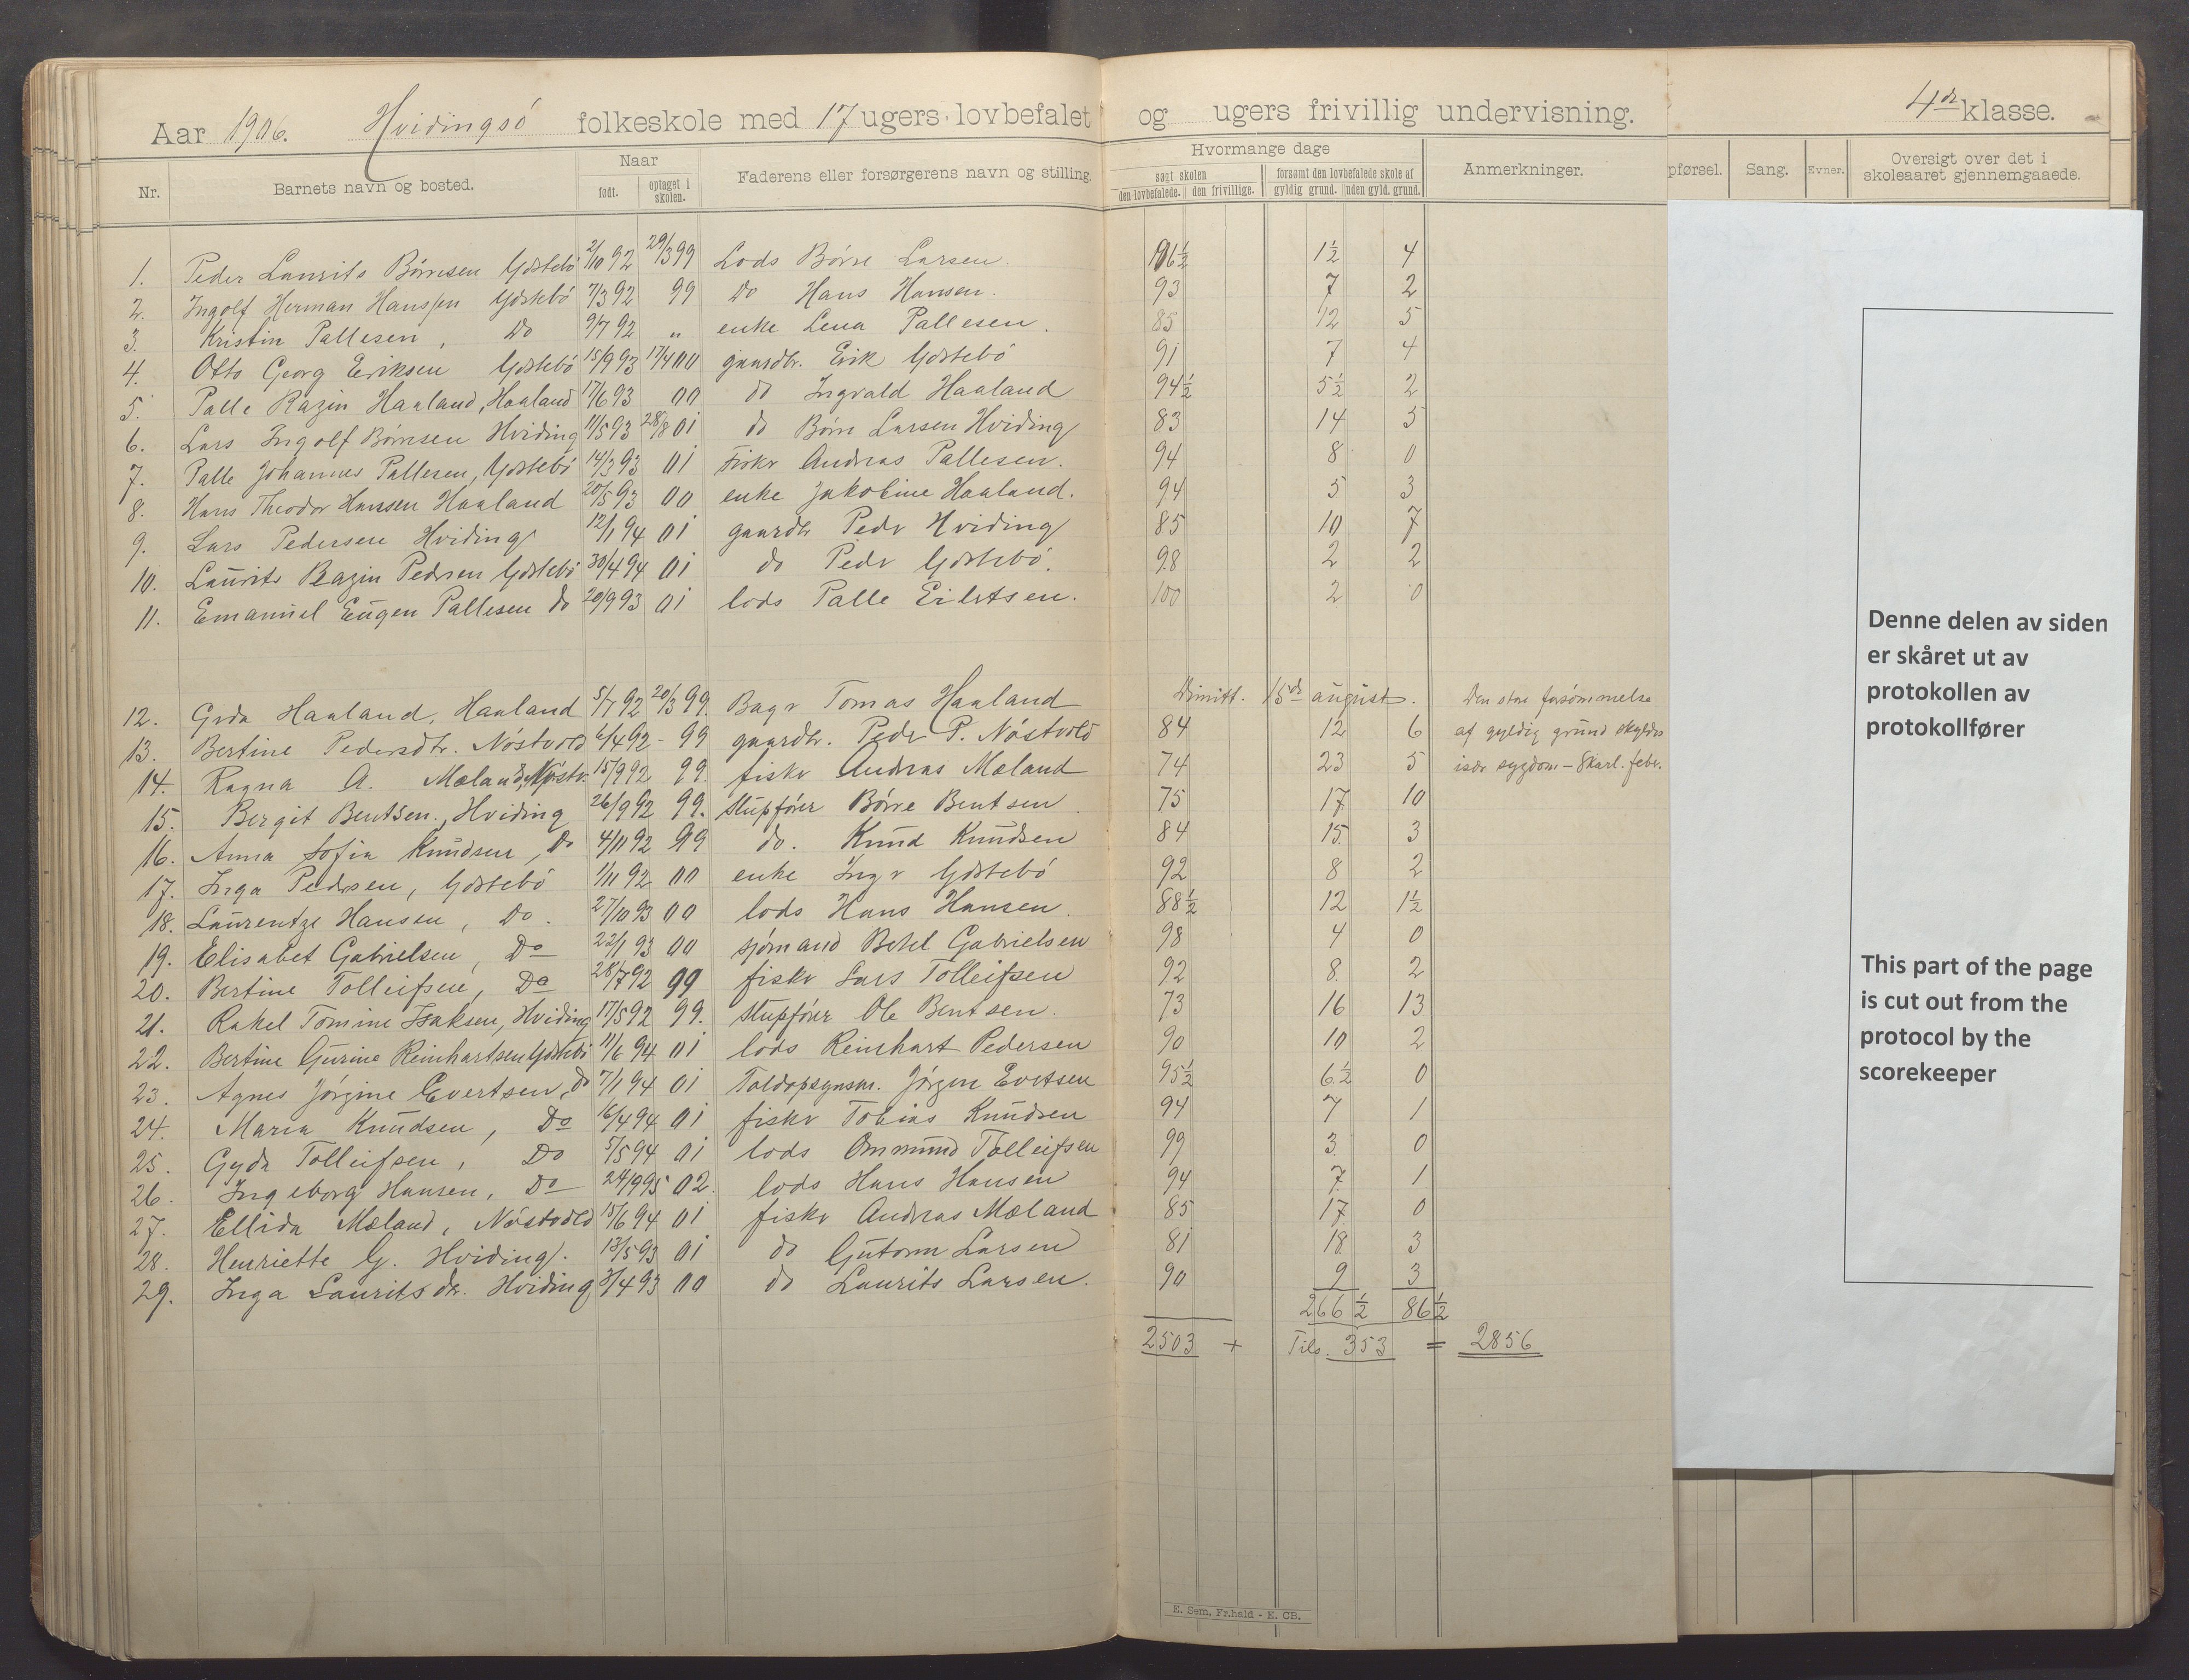 Aar 1906. Hvidingsö folkeskole med 17 ugers lovbefalet og ugers frivillig undervisning. 4de klasse.
Nr. Barnets navn og bosted. Naar født. optaget i skolen. Faderens eller forsørgerens navn og stilling. Hvormange dage søgt skolen den lovbefalede. den frivillige. forsømt den lovbefalede skole af gyldig grund. uden gyld. grund. Anmerkninger. pførsel. Sang. Evner. Oversigt over det i skoleaaret gjennemgaaede.
1. Peder Laurits Börresen Ydstebö 2/10 92 29/3 99 Lods Börre Larsen. 96½ 1½ 4
2. Ingolf Herman Hanssen Ydstebö 7/3 92 99 do Hans Hansen. 93 7 2
3. Kristin Pallesen, Do 9/7 92 " enke Lena Pallesen. 85 12 5
4. Otto Georg Eriksen Ydstebö 15/9 93 17/4 00 gaardbr. Erik Ydstebö 91 7 4
5. Palle Razin Haaland, Haaland 17/6 93 00 do Ingvald Haaland 94½ 5½ 2
6. Lars Ingolf Börresen Hviding 11/5 93 28/8 01 do Börre Larsen Hviding 83 14 5
7. Palle Johannes Pallesen, Ydstebö 14/3 93 01 Fisker Andreas Pallesen. 94 8 0
8. Hans Theodor Hansen Haaland 20/5 93 00 enke Jakobine Haaland. 94 5 3
9. Lars Pedersen Hviding 12/1 94 01 gaardbr Peder Hviding 85 10 7
10. Laurits Razin Pedersen Ydstebö 30/4 94 01 do Peder Ydstebö. 98 2 2
11. Emanuel Eugen Pallesen do 20/9 93 01 lods Palle Eilertsen. 100 2 0
12. Gerda Haaland, Haaland 5/7 92 20/3 99. Bager Tomas Haaland Dimitt. 15de august. Den store forsömmelse
13. Bertine Pedersdtr. Nöstvold 6/4 92 - 99 gaardbr. Peder P. Nöstvold 84 12 6 af gyldig grund skyldes
14. Ragna A. Mæland, Nöstv. 15/9 92 99. fisker Andreas Mæland 74 23 5 især sygdom - Skarl. feber.
15. Bergit Bentsen, Hviding 26/9 92 99. slupförer Börre Bentsen. 75 17 10
16. Anna Sofia Knudsen, Do 4/11 92 99 do. Knud Knudsen 84 15 3
17. Inga Pedersen, Ydstebö 1/11 92 00 enke Inger Ydstebö 92 8 2
18. Laurentze Hansen, Do. 27/10 93 00 lods Hans Hansen. 88½ 12 1½
19. Elisabet Gabrielsen, Do 22/1 93 00 sjömand Betel Gabrielsen 98 4 0
20. Bertine Tolleifsen, Do 28/7 92 99 fisker Lars Tolleifsen 92 8 2
21. Rakel Tomine Isaksen, Hviding 17/5 92 99. slupförer Ole Bentsen. 73 16 13
22. Bertine Gurine Reinhartsen Ydstebö 11/6 94 01 lods Reinhart Pedersen 90 10 2
23. Agnes Jörgine Evertsen, do 7/1 94 01 Toldopsynsm. Jörgen Evertsen 95½ 6½ 0
24. Maria Knudsen, Do 16/4 94 01 fisker Tobias Knudsen 94 7 1
25. Gyda Tolleifsen, Do 5/5 94 01 lods Ommund Tolleifsen 99 3 0
26. Ingeborg Hansen, Do 24/9 95 02. lods Hans Hansen 94 7 1
27. Ellida Mæland, Nöstvold 15/6 94 01 fisker Andreas Mæland 85 17 0
28. Henriette G. Hviding. 13/5 93 01 do Gutorm Larsen 81 18 3
29. Inga Lauritsdtr. Hviding 3/4 93 00 do Laurits Larsen. 90 9 3
266½ 86½
2503 + Tils. 353 = 2856
E. Sem. Fr.hald - E. CB.
Denne delen av siden
er skåret ut av
protokollen av
protokollfører
This part of the page
is cut out from the
protocol by the
scorekeeper